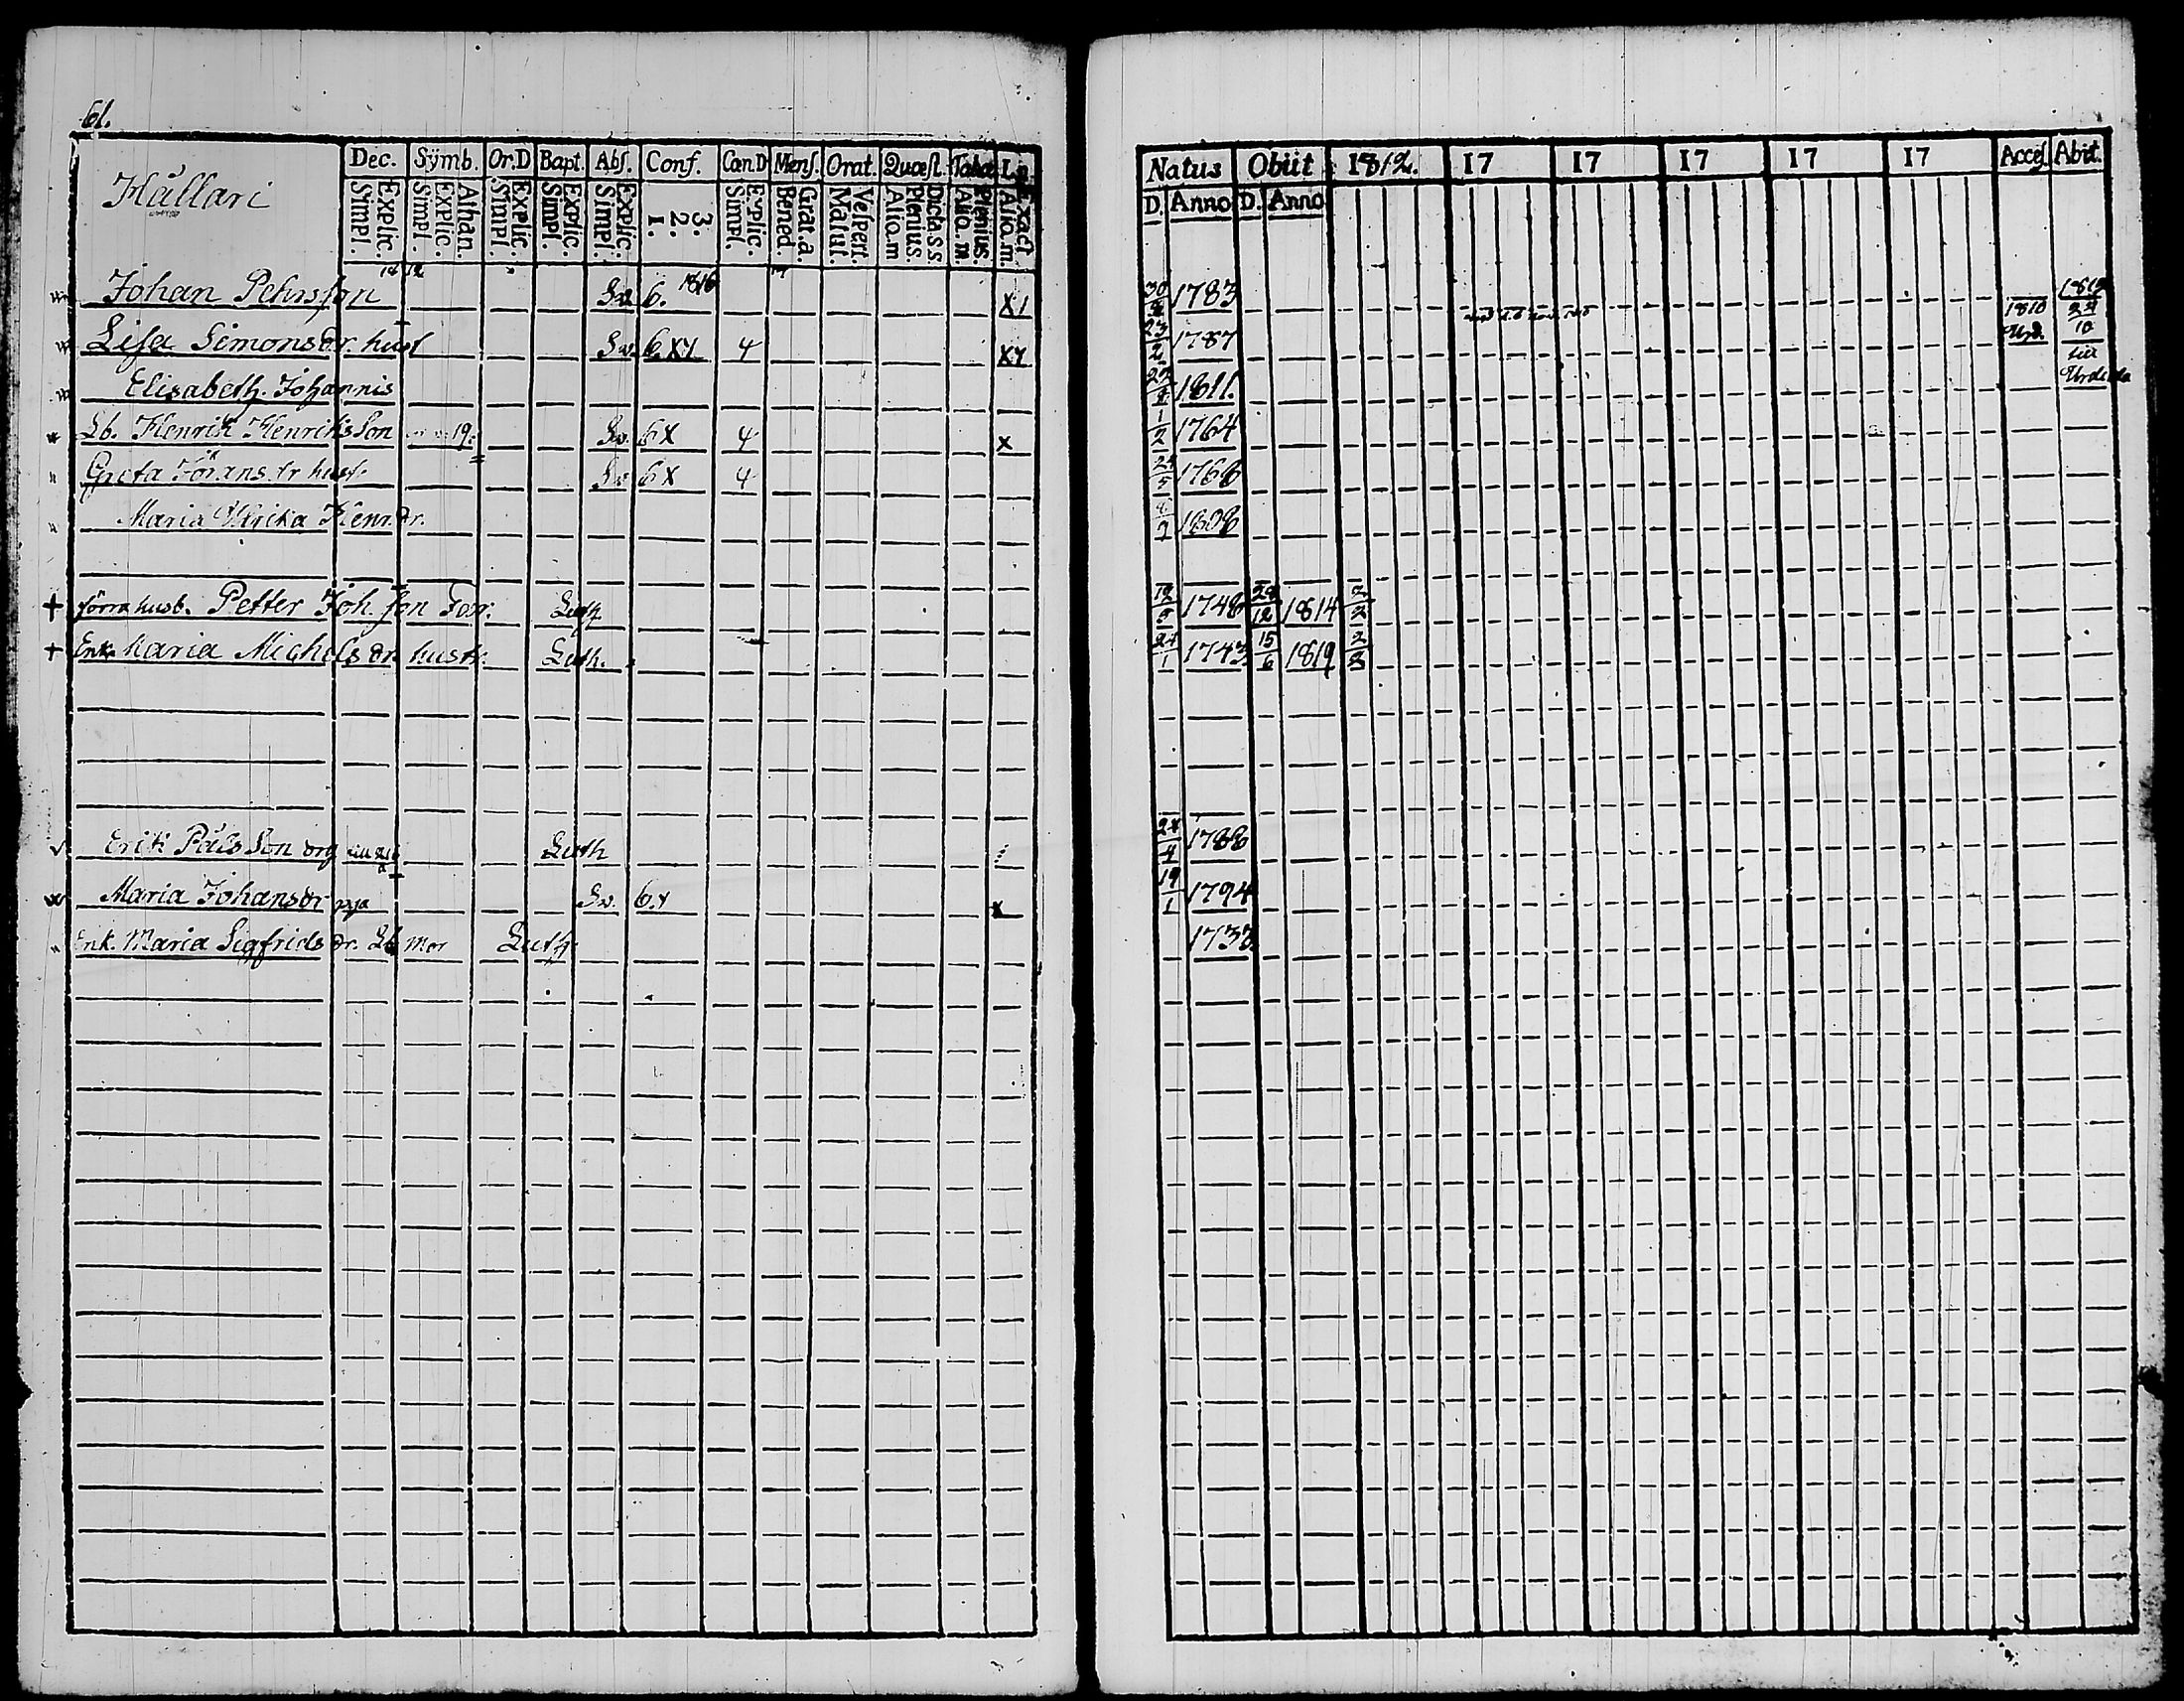 61.
Hullari
Dec. Symb. Or.D Bapt. Abs. Conf. Can.D Mens. Orat. Quæst. Tabæ L.p.
Simpl. Explic. Simpl. Explic. Athan. Simpl. Explic. Simpl. Explic. Simpl. Explic. 1. 2. 3. Simpl. Explic. Bened. Grat.a. Matut. Vespert. Alio.m Plenius. Dicta s s Alio.m Plenius Alio.m. Exact
Natus Obiit 1812. 17 17 17 17 17 Acces. Abit.
D. Anno D. Anno
Johan Pehrsson Sv. 6. 1816 X1 30 1783 1810 1819
Lisa Simonsdr. hust Sv. 6. X1 4 X1 23/2 1787 10
Elisabeth. Johannis 1811. till
Lb. Henrik Henriksson 19. Sv. 6 X 4 X 1/2 1764
Greta Jöransdr hust. Sv 6 X 4 24/5 1766
Maria Ulrika Henr.dr. 1808
+ förra husb. Petter Joh. son Luth 1748 1814 2/2
+ Enk. Maria Michelsdr. hustr. Luth. 24/1 1743 15/6 1819
Erik Påls Son drg Luth 24/4 1788
Maria Johansdr Sv. 6.x x 19/1 1794
Enk. Maria Sigfridsdr. Lb mor Luth. 173